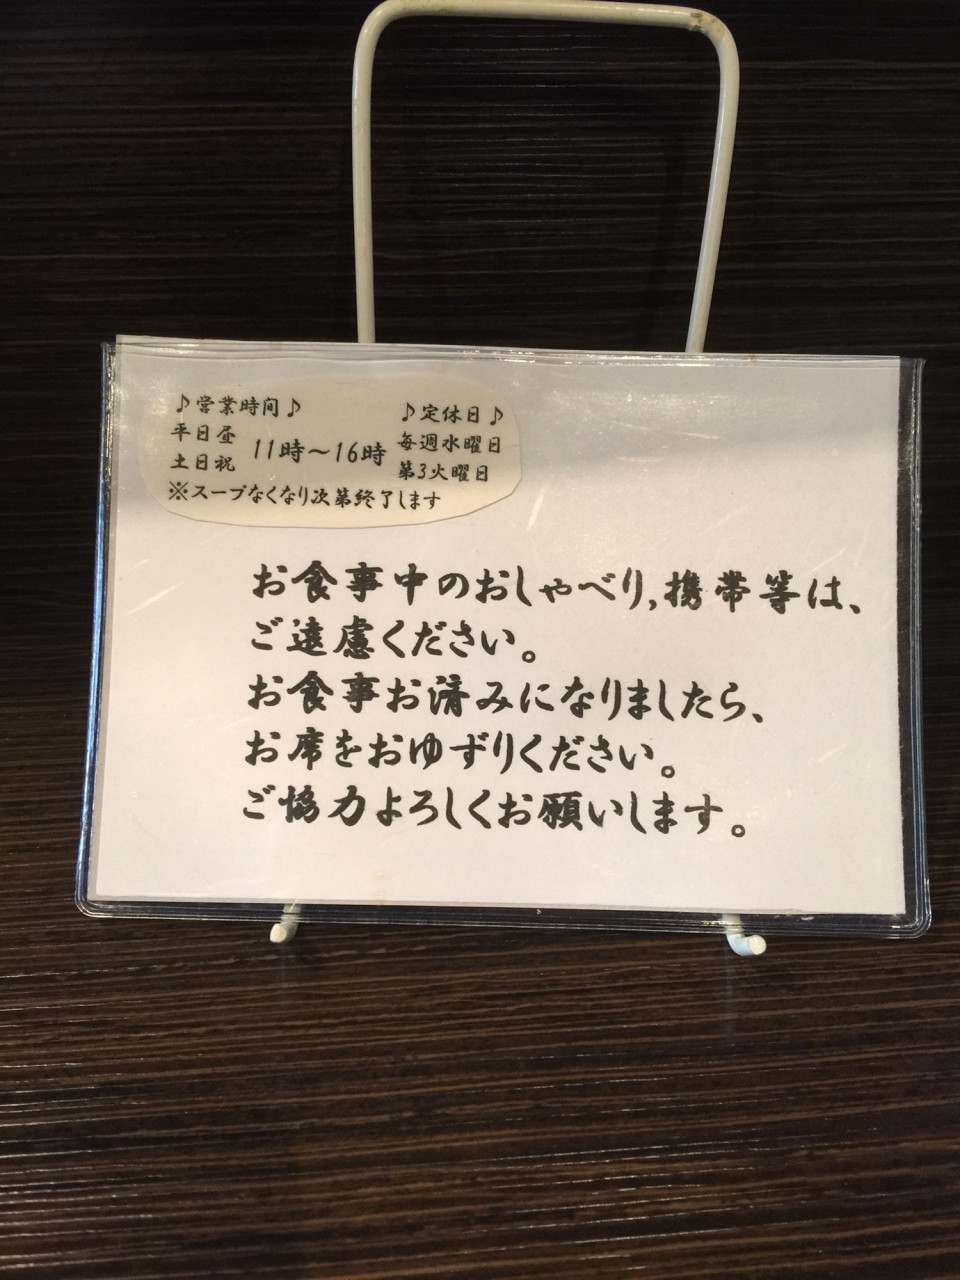 ♪営業時間♪
平日昼
土日祝
11時～16時
♪定休日♪
毎週水曜日
第3火曜日
※スープなくなり次第終了します
お食事中のおしゃべり,携帯等は、
ご遠慮ください。
お食事お済みになりましたら、
お席をおゆずりください。
ご協力よろしくお願いします。